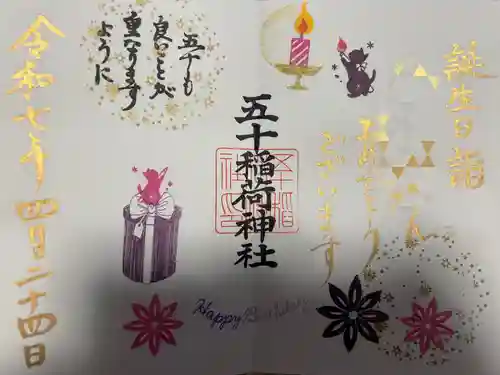 誕生日詣
おめでとう
ございます
五十も
良いことが
重なります
ように
五十稲荷神社
Happy Birthday
令和七年四月二十四日